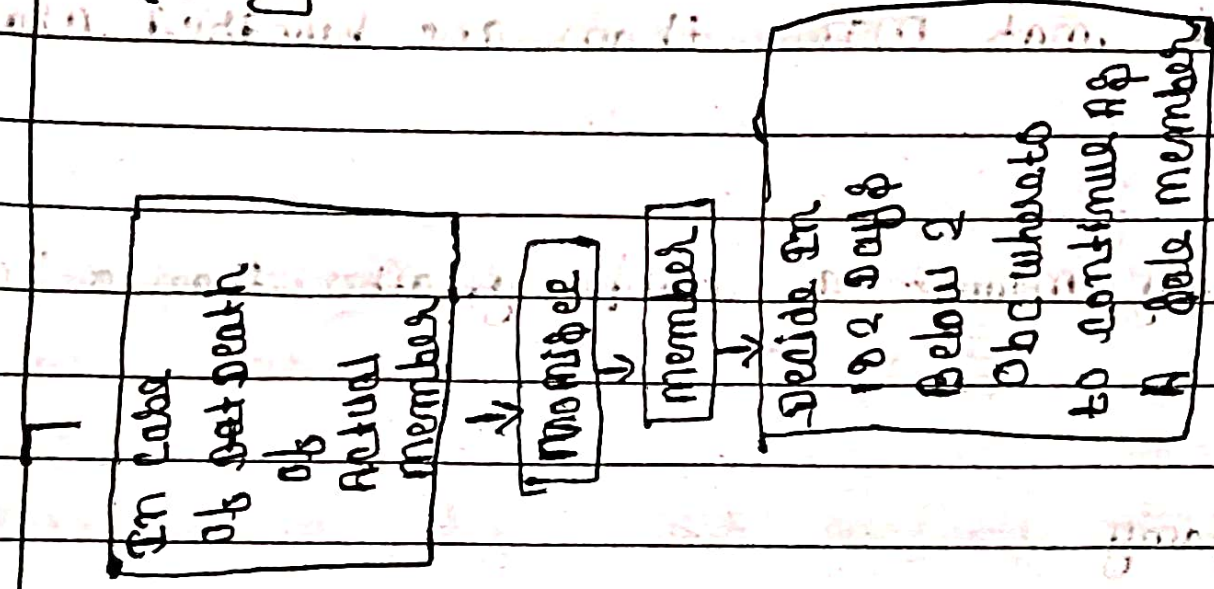 In Case
of Dat Death
of
Actual
member
Nomisee
member
Decide In
182 Days
Below 2
Oba wherato
to continue As
A Sale member